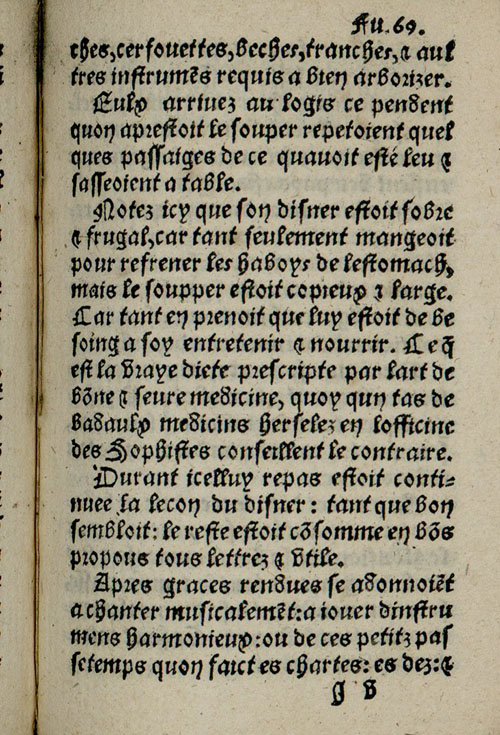 Fu. 69.
ches, cerfouettes, beches, tranches, ⁊ aul
tres instrumēs requis a bien arborizer.
Eulx arriuez au logis ce pendent
quon aprestoit le souper repetoient quel
ques passaiges de ce quauoit esté leu ⁊
sasseoient a table.
Notez icy que son disner estoit sobre
⁊ frugal, car tant seulement mangeoit
pour refrener les haboys de lestomach,
mais le soupper estoit copieux ⁊ large.
Car tant en prenoit que luy estoit de be
soing a soy entretenir ⁊ nourrir. Ce q̄
est la vraye diete prescripte par lart de
bōne ⁊ seure medicine, quoy qun tas de
badaulx medicins herselez en lofficine
des Sophistes conseillent le contraire.
Durant icelluy repas estoit conti-
nuee la lecon du disner: tant que bon
sembloit: le reste estoit cōsomme en bōs
propous tous lettrez ⁊ vtile.
Apres graces rendues se adonnoiēt
a chanter musicalemēt: a iouer dinstru
mens harmonieux: ou de ces petitz pas
setemps quon faict es chartes: es dez: ⁊
g v